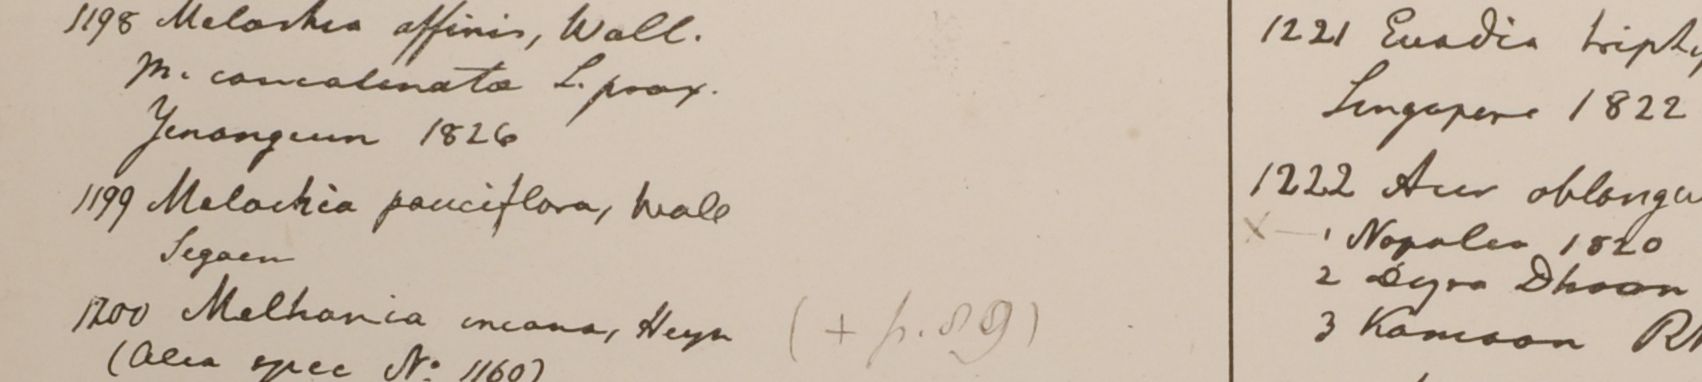 1198 Melochia affinis, Wall.
M. concatenata L. prox.
Yenangeun 1826
1199 Melochia pauciflora, Wall
Segaen
1200 Melhania incana, Heyn (+ p. 89)
(Alia spec No: 1160)
1221 Evodia triphy
Singapore 1822
1222 Acer oblongu
X — 1 Napalia 1820
2 Deyra Dhoon
3 Kamaon